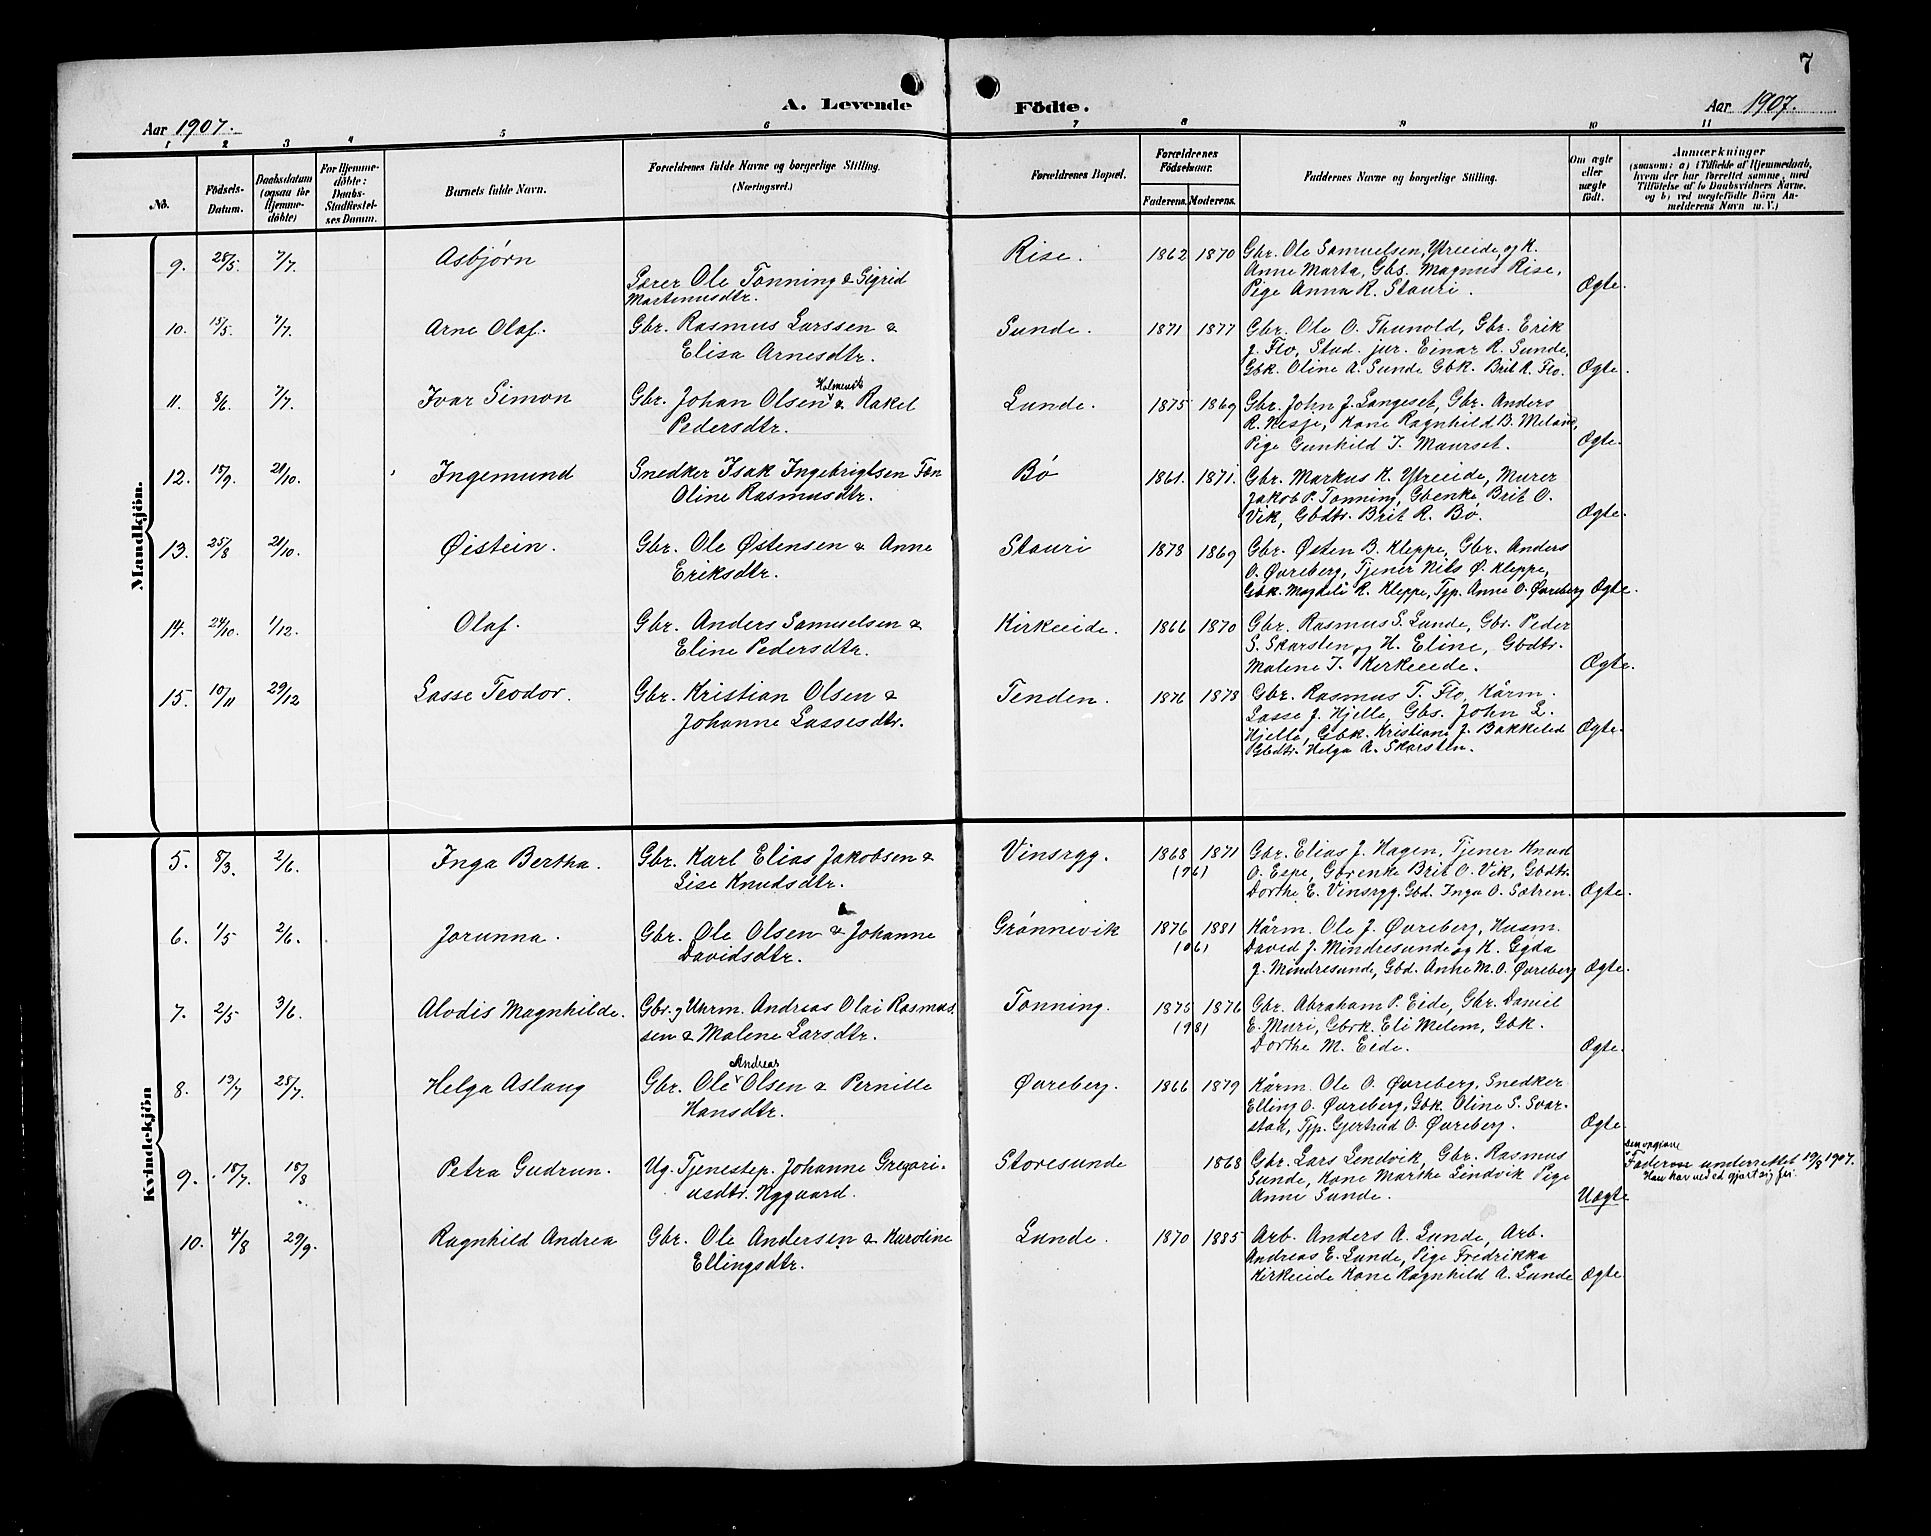 7
A. Levende Födte.
Aar 1907.
Aar 1907.
1 2 3 4 5 6 7 8 9 10 11
No.
Födsels-Datum.
Daabsdatum (ogsaa for Hjemme-döbte)
For Hjemme-döbte: Daabs-Stadfæstel-ses Datum.
Barnets fulde Navn.
Forældrenes fulde Navne og borgerlige Stilling. (Næringsvei.)
Forældrenes Bopæl.
Forældrenes Födselsaar.
Faderens. Moderens.
Faddernes Navne og borgerlige Stilling.
Om ægte eller uægte födt.
Anmærkninger
(saasom: a) i Tilfælde af Hjemmedaab, hvem der har forrettet samme, med Tilföielse af to Daabsvidners Navne, og b) ved uægtefödte Börn An-melderens Navn m. V.)
Mandkjön.
9. 28/5. 7/7. Asbjørn
Lærer Ole Tonning & Sigrid
Martenusdtr.
Rise. 1862 1870
Gbr. Ole Samuelsen, Ytreeide, og K.
Anne Marta, Gbs. Magnus Rise,
Pige Anna R. Stauri. Ægte.
10. 15/5. 7/7. Arne Olaf.
Gbr. Rasmus Larssen &
Elisa Arnesdtr.
Sunde. 1871 1877
Gbr. Ole O. Thunold, Gbr. Erik
J. Flo, Stud. jur. Einar R. Sunde,
Gbk. Oline A. Sunde Gbk. Brit R. Flo. Ægte.
11. 8/6. 7/7. Ivar Simon
Gbr. Johan Olsen Holmevik & Rakel
Pedersdtr.
Lunde. 1875 1869
Gbr. John J. Langeset, Gbr. Anders
R. Nesje, Kone Ragnhild B. Melane,
Pige Gunhild I. Maurset. Ægte.
12. 15/9. 21/10. Ingemund
Snedker Isak Ingebrigtsen Fæn
Oline Rasmusdtr.
Bø 1861. 1871.
Gbr. Markus K. Ytreeide, Murer
Jakob P. Tonning, Gbenke Brit O.
Vik, Gbdtr. Brit R. Bø. Ægte.
13. 25/8 21/10. Øistein.
Gbr. Ole Østensen & Anne
Eriksdtr.
Stauri 1878 1869
Gbr. Østen B. Kleppe, Gbr. Anders
O. Øvreberg, Tjener Nils Ø. Kleppe,
Gbk. Magdeli R. Kleppe, Tjp. Anne O. Øvreberg Ægte.
14. 24/10. 1/12. Olaf.
Gbr. Anders Samuelsen &
Eline Pedersdtr.
Kirkeeide. 1866 1870
Gbr. Rasmus S. Lunde, Gbr. Peder
S. Skarsten og K. Eline, Gbdtr.
Malene I. Kirkeeide. Ægte.
15. 10/11 29/12 Lasse Teodor.
Gbr. Kristian Olsen &
Johanne Lassesdtr.
Tenden. 1876 1878
Gbr. Rasmus T. Flo, Kårm.
Lasse J. Hjelle, Gbs. John L.
Hjelle, Gbk. Kristiane J. Bakkelid
Gbdtr. Helga A. Skarsten. Ægte.
Kvindekjön
5. 8/3. 2/6. Inga Bertha.
Gbr. Karl Elias Jakobsen &
Lise Knudsdtr.
Vinsrygg. 1868 1871
(96)
Gbr. Elias J. Hagen, Tjener Knud
O. Espe, Gbrenke Brit O. Vik, Gbdtr.
Dorthe E. Vinsrygg. Gbd. Inga O. Sætren. Ægte.
6. 1/5 2/6. Jorunna.
Gbr. Ole Olsen & Johanne
Davidsdtr.
Grønnevik 1876 1881
(06)
Kårm. Ole J. Øvreberg, Husm.
David J. Mindresunde og K. Gyda
J. Mindresunde, Gbd. Anne M. O. Øvreberg Ægte.
7. 2/5 3/6. Alodis Magnhilde.
Gbr. g Uurm. Andreas Olai Rasmus-
sen & Malene Larsdtr.
Tonning. 1875 1876
(98)
Gbr. Abraham P. Eide, Gbr. Daniel
E. Muri, Gbrk. Eli Melem, Gbk.
Dorthe M. Eide. Ægte.
8. 19/7 28/7. Helga Aslaug
Gbr. Ole Andreas Olsen & Pernille
Hansdtr.
Øvreberg. 1866 1879
Kårm. Ole O. Øvreberg, Snedker
Elling O. Øvreberg, Gbk. Oline S. Svar-
stad, Tjp. Gjertrud O. Øvreberg. Ægte.
9. 15/7. 18/8 Petra Gudrun.
Ug. Tjenestep. Johanne Gregori-
usdtr. Nygaard.
Storesunde 1868
Gbr. Lars Lindvik, Gbr. Rasmus
Sunde, Kone Marthe Lindvik Pige
Anne Sunde. Uægte
den opgivne
Fader underrettet 19/8 1907.
Han har ved ed gjort sig fri.
10. 4/8 29/9. Ragnhild Andrea
Gbr. Ole Andersen & Karoline
Ellingsdtr.
Lunde. 1870 1885
Arb. Anders A. Lunde, Arb.
Andreas E. Lunde, Pige Fredrikka
Kirkeeide Kone Ragnhild A. Lunde Ægte.